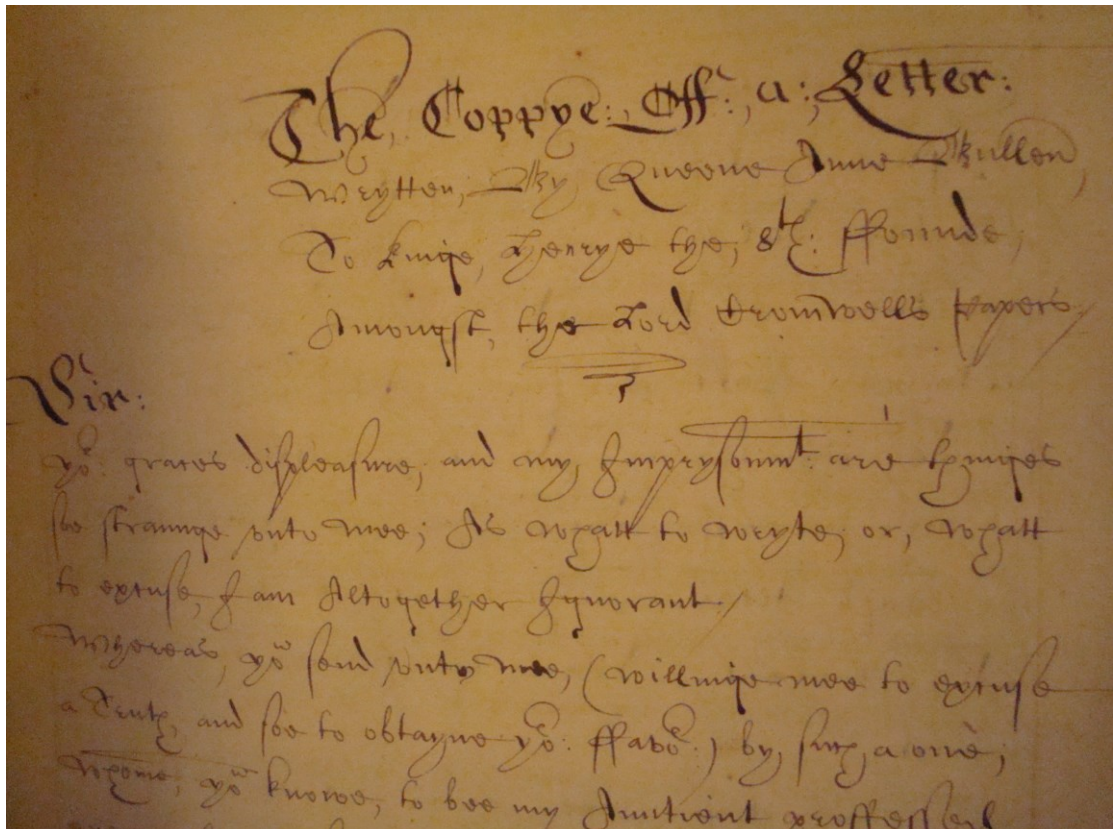 The, Coppye:, Off:, a:, Letter:
Wrytten, By Queene Anne Bullen,
To kinge, Henrye the, 8th: ffounde,
Amongst, the Lord Cromwells Papers/
Sir:
yor: graces displeasure, and my, Imprysonmt: are thinges
soe straunge vnto mee; As whatt to wryte, or, whatt
to excuse, I am Altogether Ignorant./
Whereas, you send vnto mee, (willinge mee to excuse
a Truth, and soe to obtayne yor: ffavor:) by, such a one,
whome, you knowe, to bee my Auntient proffessed